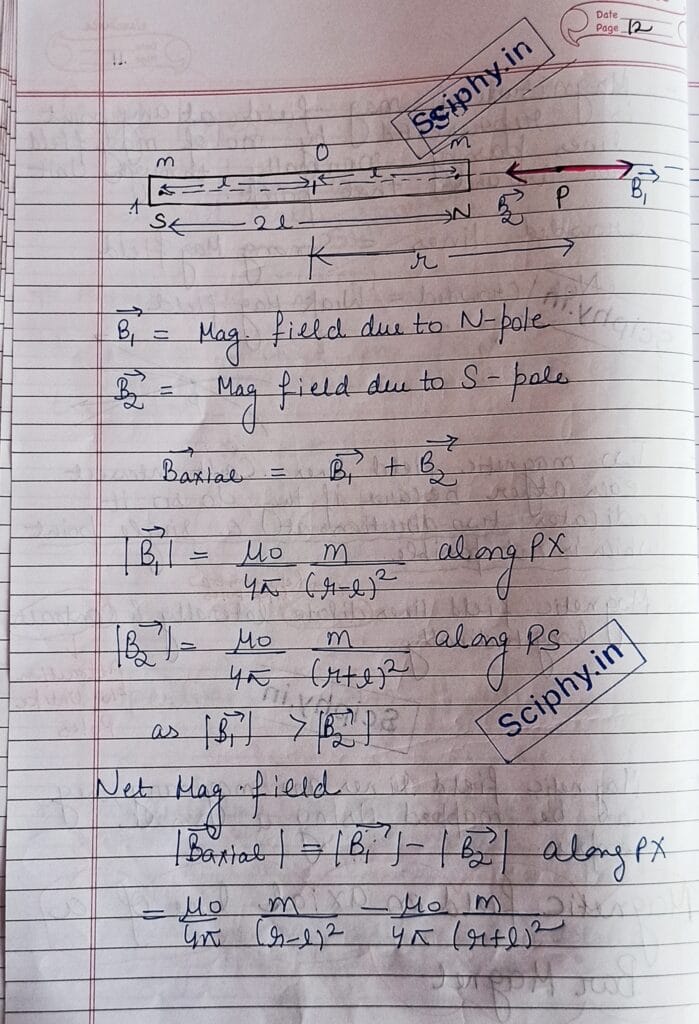 Date
Page 12
11.
Sciphy.in
m O m
l l
S 2l N B₂⃗ P B₁⃗
r
B₁⃗ = Mag. field due to N-pole
B₂⃗ = Mag field due to S-pole
B⃗axial = B₁⃗ + B₂⃗
|B₁⃗| = μ0/4π m/(r-l)² along PX
|B₂⃗| = μ0/4π m/(r+l)² along PS
Sciphy.in
as |B₁⃗| > |B₂⃗|
Net Mag. field
|B⃗axial| = |B₁⃗| - |B₂⃗| along PX
= μ0/4π m/(r-l)² - μ0/4π m/(r+l)²